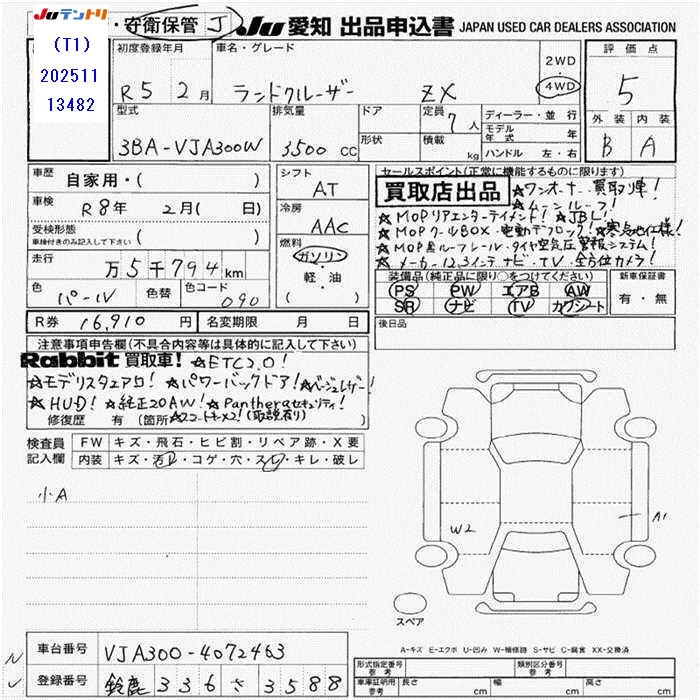 Juテントリ ・守衛保管 J Ju 愛知 出品申込書 JAPAN USED CAR DEALERS ASSOCIATION
(T1)
202511
13482
初度登録年月 R5 2月
車名・グレード ランドクルーザー ZX
2WD
4WD
評価点 5
外装 内装
B A
型式 3BA-VJA300W
排気量 3500 CC
ドア
形状
定員 7人
積載 kg
ディーラー・並行
モデル年式 年
ハンドル 左・右
車歴 自家用・( )
車検 R8年 2月( 日)
受検形態 ( )
車検付きのみ記入して下さい
走行 万5千794km
色 パール 色替 色コード 090
シフト AT
冷房 AAC
燃料
ガソリン
・
軽・油
( )
セールスポイント(正常に機能するものに限ります)
買取店出品 ☆ワンオーナー買取車!
☆ムーンルーフ!
☆MOPリアエンターテイメント! ☆JBL!
☆MOPクールBOX・電動デフロック!☆寒冷地仕様!
☆MOP黒ルーフレール・タイヤ空気圧警報システム!
☆メーカー12.3インチナビ・TV・全方位カメラ!
装備品(純正品に限り○をつけてください)
PS PW エアB AW
SR ナビ TV カワシート
新車保証書
有・無
後日品
R券 16,910 円 名変期限 月 日
注意事項申告欄(不具合内容等は具体的に記入して下さい)
Rabbit 買取車! ☆ETC2.0!
☆モデリスタエアロ! ☆パワーバックドア! ☆ベージュレザー!
☆HUD! ☆純正20AW! ☆Pantheraセキュリティ!
修復歴 有(箇所 ☆スマートキー×2!(取説有り)
検査員記入欄
FW キズ・飛石・ヒビ割・リペア跡・X要
内装 キズ・汚レ・コゲ・穴・スレ・キレ・破レ
小A
W2
A1
スペア
A-キズ E-エクボ U-凹み W-補修跡 S-サビ C-腐食 XX-交換済
車台番号 VJA300-4072463
登録番号 鈴鹿 336 さ 3588
形式指定番号 参考
類別区分番号 参考
車庫証明用 参考 長さ cm 幅 cm 高さ cm